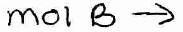 mol B →